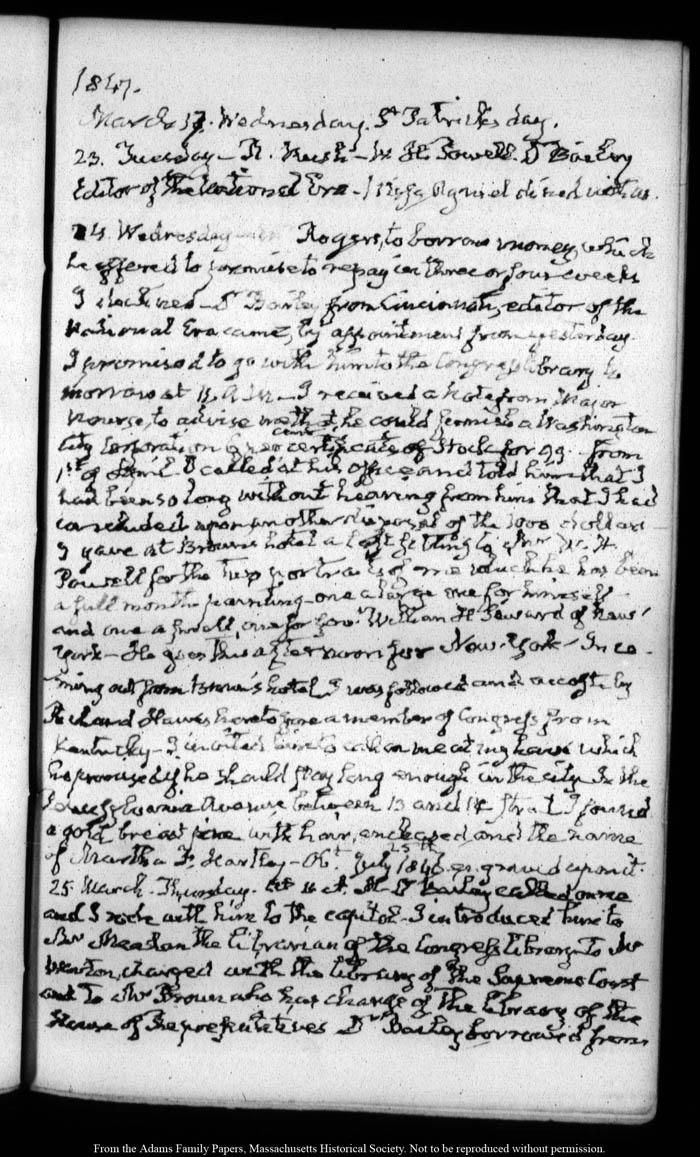 1847.
March 17. Wednesday. St Patricks day.
23. Tuesday — R. Rush — W. H. Powell. Dr Bailey
Editor of the National Era — dined with us.
24. Wednesday Rogers, to borrow money, which
he offered to promise to repay in three or four weeks
I declined — Dr Bailey from Cincinnati, editor of the
National Era came, by appointment from yesterday.
I promised to go with him to the Congress library to
morrow at 11. A.M. — I received a Note from Major
Nourse, to advise me that he could furnish a Washington
City Corporation 6 per cent certificate of Stock for 99. from
1st of April. I called at his Office and told him that I
had been so long without hearing from him that I had
concluded upon another disposal of the 1000 dollars
I gave at Brown's hotel a last sitting to Mr W. H.
Powell for the two portraits of me which he has been
a full month painting — one a large one for himself
and one a small, one for Govr William H. Seward of New
York — He goes this afternoon for New-York — In co-
ming out from Brown's hotel I was followed and accosted by
Richard Hawes heretofore a member of Congress from
Kentucky — I invited him to call on me at my house which
he promised if he should stay long enough in the city. In the
Pennsylvania Avenue between 13 and 14 street I found
a gold breast pin with hair, enclosed, and the name
of Martha F. Hartley — Obt July 25th 1846. engraved upon it.
25. March. Thursday. At 11 Dr Bailey called on me
and I rode with him to the Capitol — I introduced him to
Mr Meehan the Librarian of the Congress library — To Mr
charged with the library of the Supreme Court
and to Mr Brown who has charge of the library of the
House of Representatives Dr Bailey borrowed from
From the Adams Family Papers, Massachusetts Historical Society. Not to be reproduced without permission.